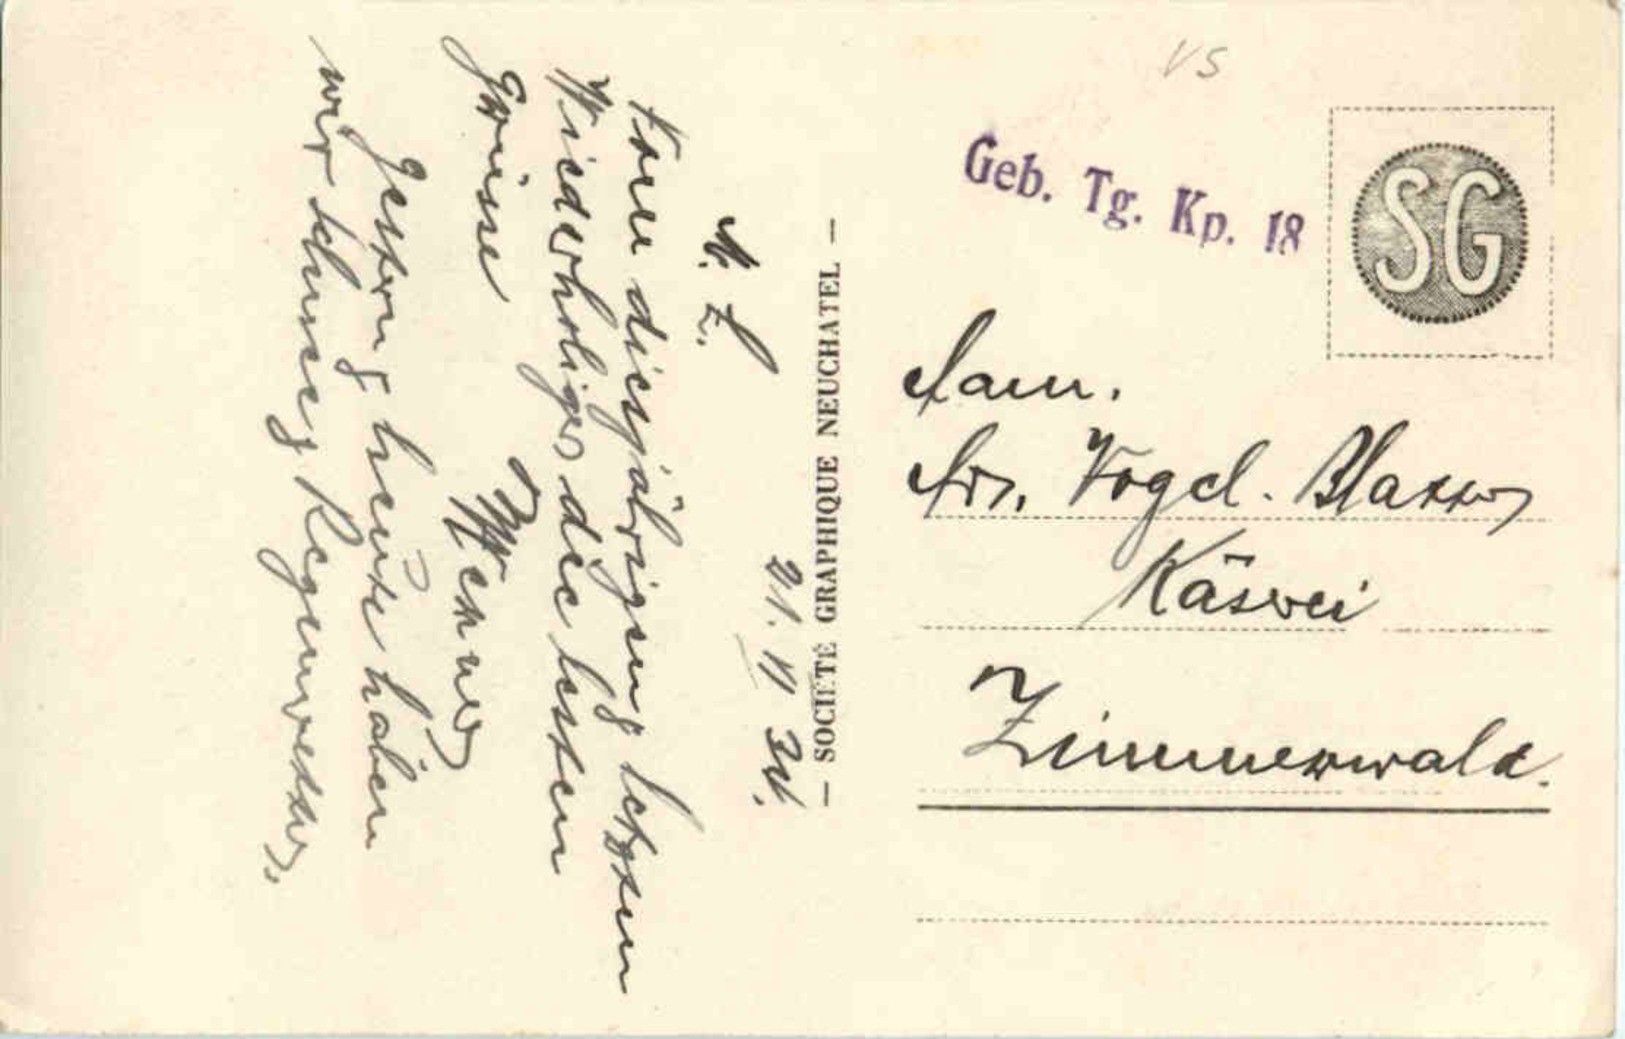 VS
Geb. Tg. Kp. 18
SG
Fam.
Frs. Vogel-Blaser
Käserei
Zimmerwald.
— SOCIÉTÉ GRAPHIQUE NEUCHATEL —
21. VI 34.
M. L.
Vom diesjährigen letzten
Wiederholiger die besten
Grüsse
Werner
Gestern & heute haben
wir Schnee & Regenwetter.